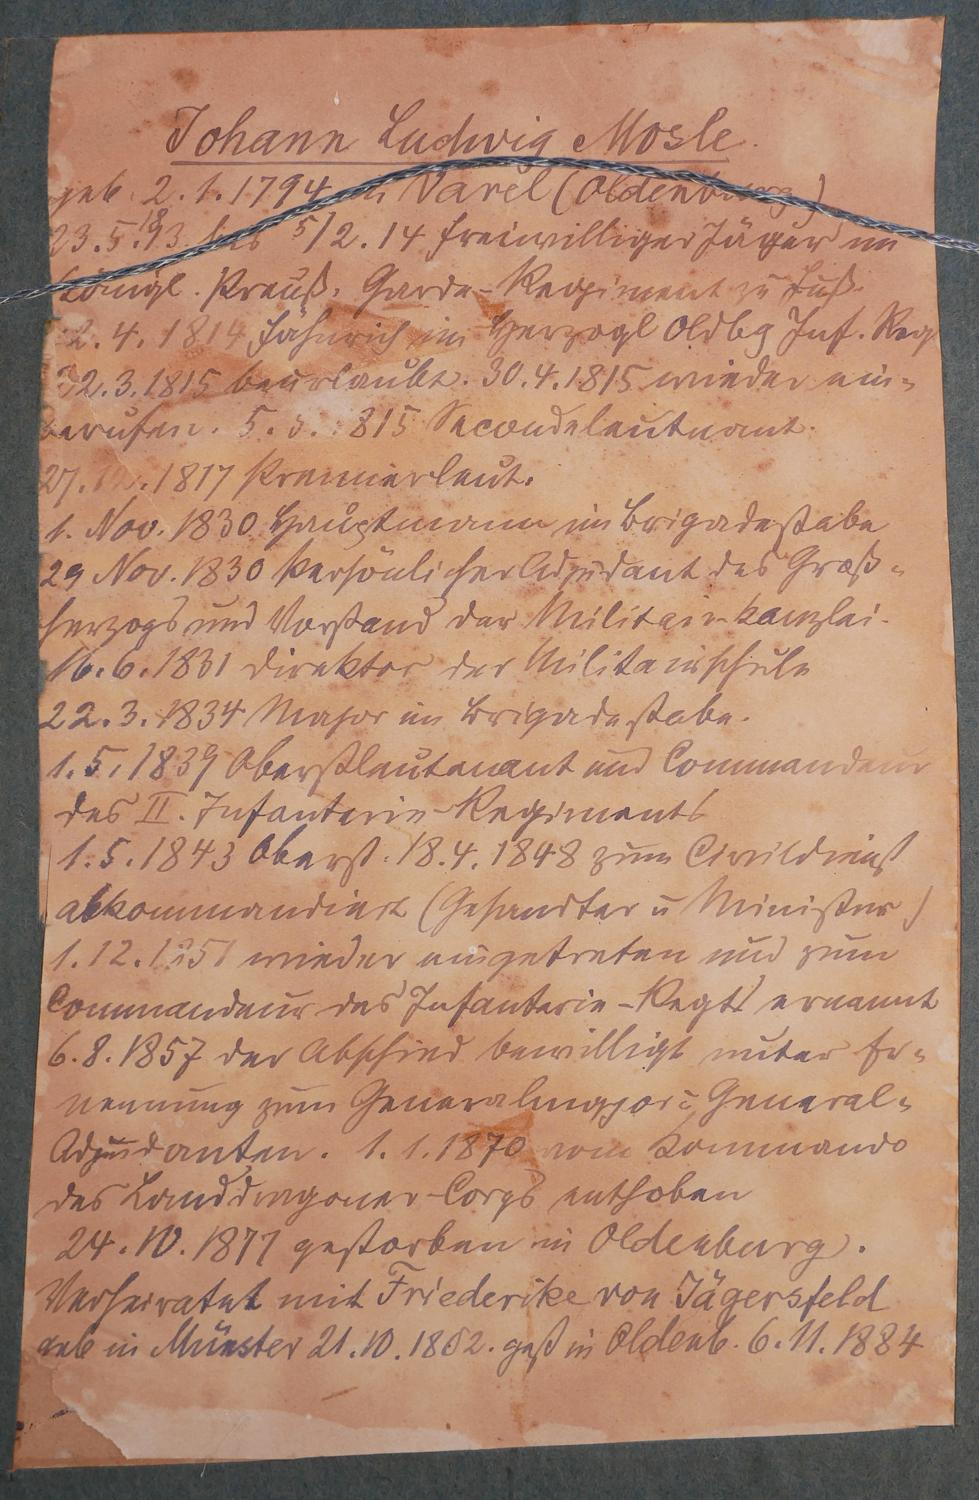 Johann Ludwig Mosle.
geb. 2.1.1794 in Varel (Oldenburg)
23.5.1813 bis 5/2.14 freiwilliger Jäger im
Königl. Preuß. Garde-Regiment zu Fuß.
2.4.1814 Fähnrich im Herzogl Oldbg Inf. Reg
2.3.1815 beurlaubt. 30.4.1815 wieder ein-
berufen. 5.5.1815 Secondeleutnant.
27. 1817 Premierleut.
1. Nov. 1830 Hauptmann im Brigadestabe
29 Nov. 1830 persönlicher Adjudant des Groß-
herzogs und Vorstand der Militairkanzlei.
16.6.1831 Direktor der Militairschule
22.3.1834 Major im Brigadestabe.
1.5.1839 Oberstleutenant und Commandeur
des II. Infanterie-Regiments
1.5.1843 Oberst. 18.4.1848 zum Civildienst
abkommandiert (Gesandter u Minister)
1.12.1851 wieder eingetreten und zum
Commandeur des Infanterie-Regts ernannt
6.8.1857 der Abschied bewilligt unter Er-
nennung zum Generalmajor u General-
Adjudanten. 1.1.1870 vom Kommando
des Landdragoner-Corps enthoben
24.10.1877 gestorben in Oldenburg.
Verheiratet mit Friederike von Jägersfeld
geb in Münster 21.10.1802. gest in Oldenb. 6.11.1884